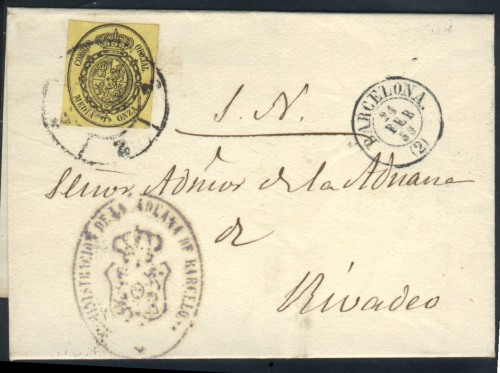 CORREO OFICIAL.
MEDIA ONZA
S. N.
BARCELONA.
21
FEB
(2)
Señor Admor de la Aduana
de
Rivadeo
ADMINISTRACION DE LA ADUANA DE BARCELONA